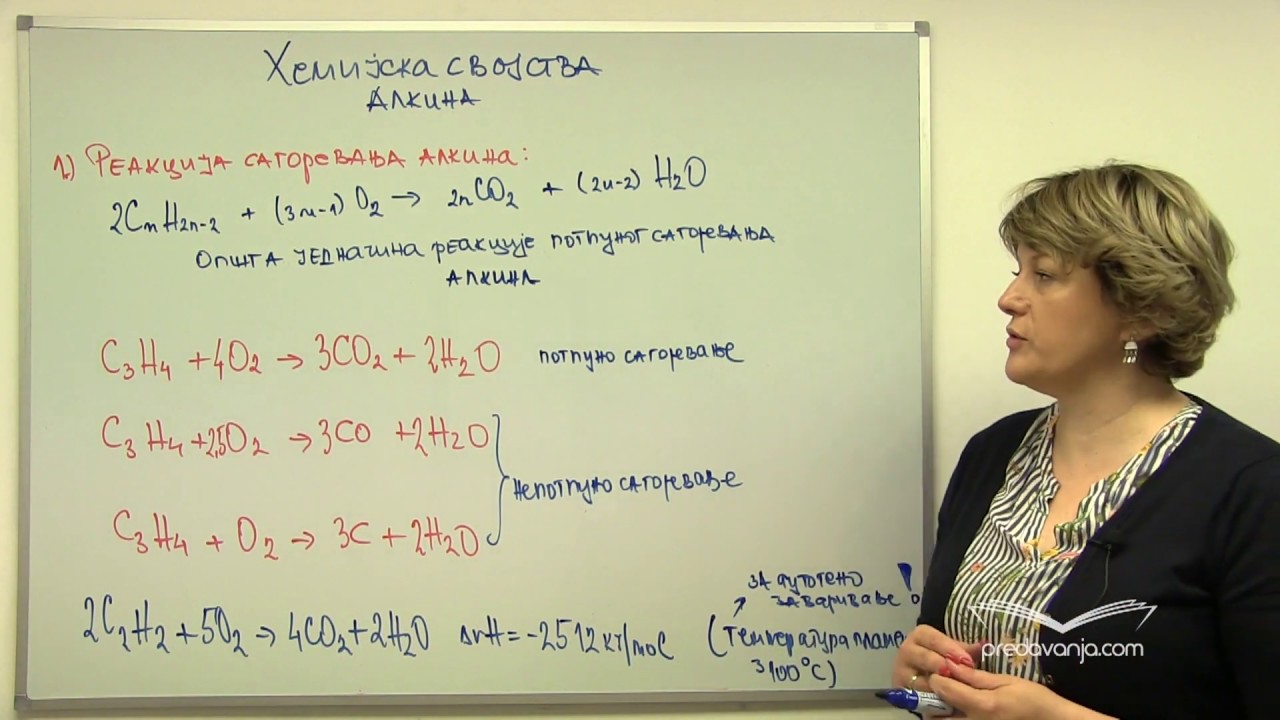 Хемијска својства
алкина
1.) Реакција сагоревања алкина:
2CnH2n-2 + (3n-1) O2 → 2nCO2 + (2n-2) H2O
Општа једначина реакције потпуног сагоревања
алкина
C3H4 + 4O2 → 3CO2 + 2H2O потпуно сагоревање
C3H4 + 2,5O2 → 3CO + 2H2O
непотпуно сагоревање
C3H4 + O2 → 3C + 2H2O
за аутогено
заваривање !
2C2H2 + 5O2 → 4CO2 + 2H2O ΔrH = -2512 kJ/mol (температура пламе
3100°C)
predavanja.com